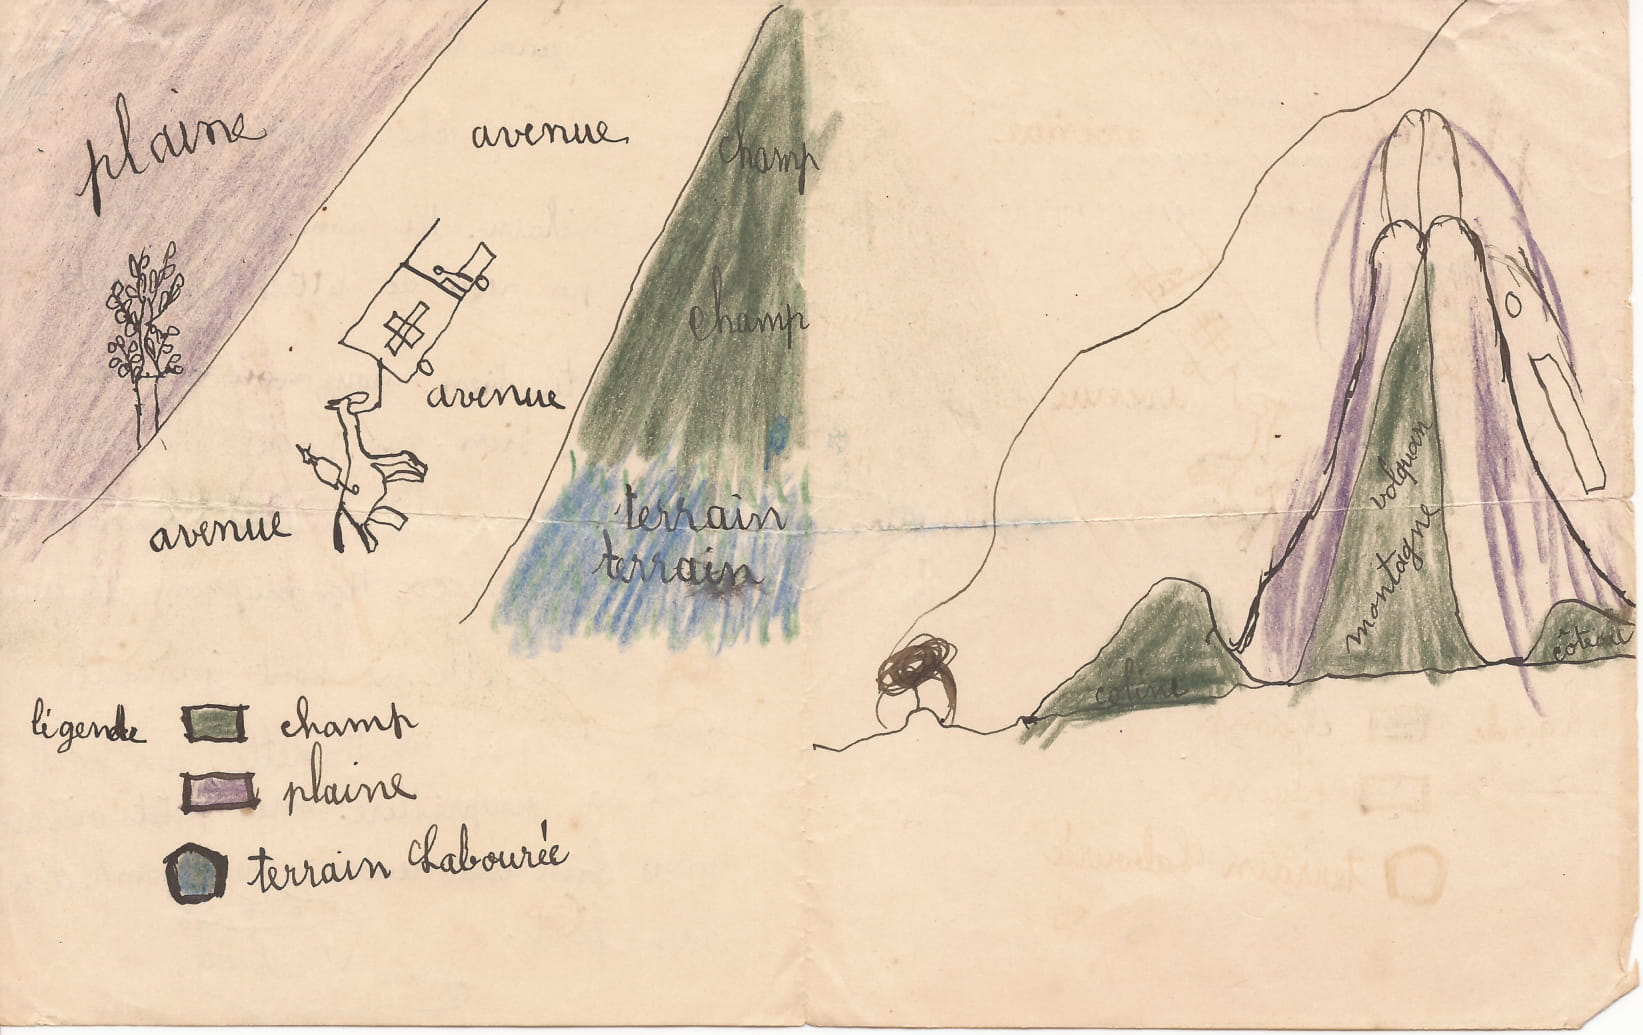 plaine
avenue
champ
champ
avenue
avenue
terrain
terrain
légende
champ
plaine
terrain Labourée
volquan
montagne
coline
côteau